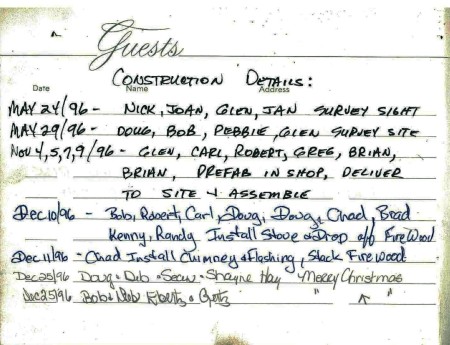 Guests
CONSTRUCTION DETAILS:
Date Name Address
MAY 24/96 - NICK, JOAN, GLEN, JAN SURVEY SIGHT
MAY 29/96 - DOUG, BOB, DEBBIE, GLEN SURVEY SITE
NOV 4,5,7,9/96 - GLEN, CARL, ROBERT, GREG, BRIAN,
BRIAN, PREFAB IN SHOP, DELIVER
TO SITE & ASSEMBLE
Dec 10/96 - Bob, Robert, Carl, Doug, Doug, Chad, Brad
Kenny, Randy Install Stove & Drop off FireWood
Dec 11/96 - Chad Install Chimney & Flashing, Stack Firewood
Dec 25/96 Doug & Deb & Sean & Shayne Hay Merry Christmas
Dec 25/96 Bob & Deb " "